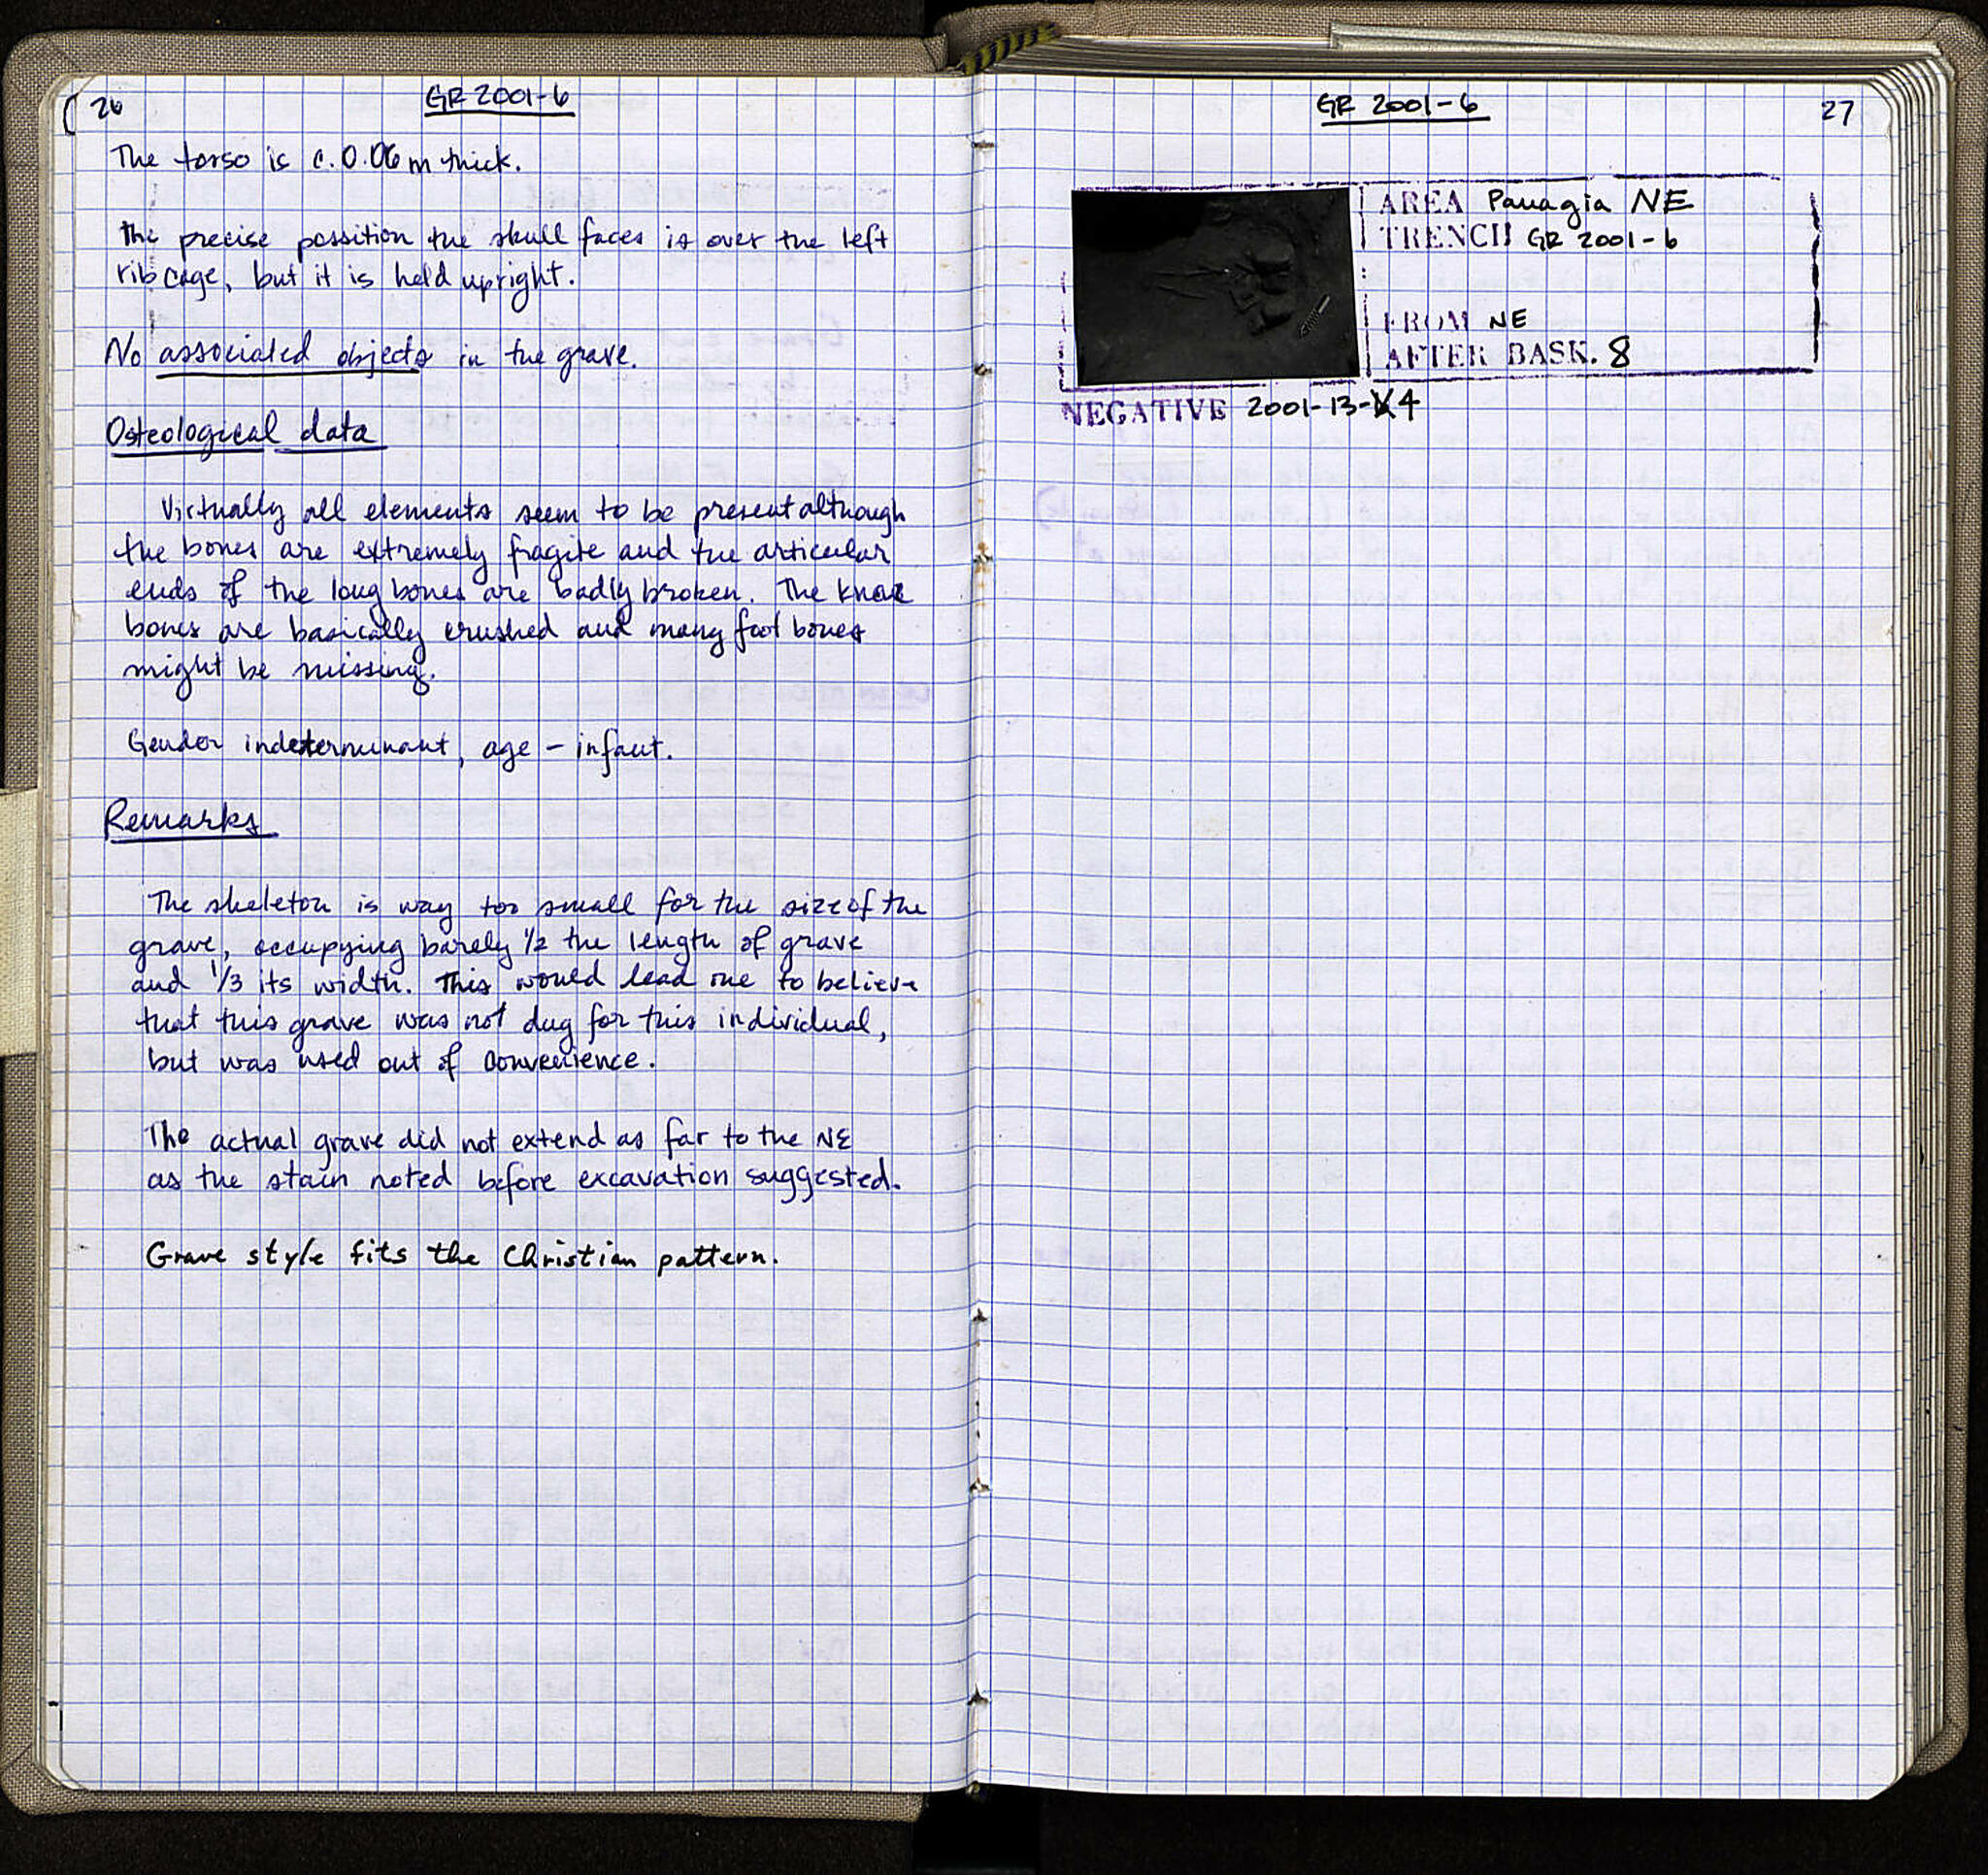 26
GR 2001-6
The torso is c. 0.06 m thick.
the precise possition the skull faces is over the left
rib cage, but it is held upright.
No associated objects in the grave.
Osteological data
Virtually all elements seem to be present although
the bones are extremely fragile and the articular
ends of the long bones are badly broken. The knee
bones are basically crushed and many foot bones
might be missing.
Gender indeterminant, age – infant.
Remarks
The skeleton is way too small for the size of the
grave, occupying barely 1/2 the length of grave
and 1/3 its width. This would lead me to believe
that this grave was not dug for this individual,
but was used out of convenience.
The actual grave did not extend as far to the NE
as the stain noted before excavation suggested.
Grave style fits the Christian pattern.
GR 2001-6
27
AREA Panagia NE
TRENCH GR 2001-6
FROM NE
AFTER BASK. 8
NEGATIVE 2001-13-4